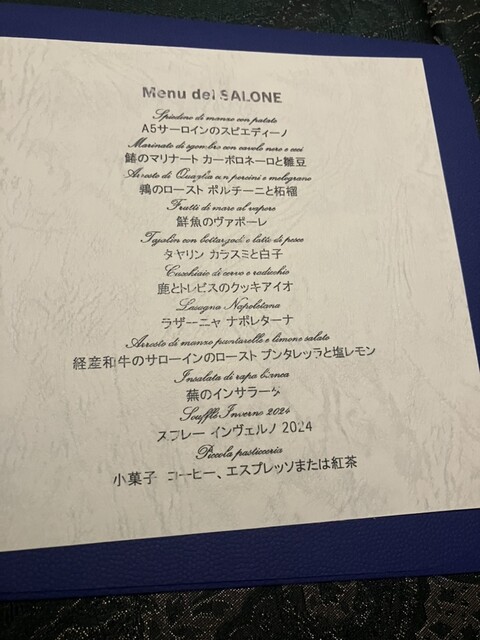 Menu del SALONE
Spiedino di manzo con patate
A5サーロインのスピエディーノ
Marinato di sgombro con cavolo nero e ceci
鰆のマリナート カーボロネーロと雛豆
Arrosto di Quaglia con porcini e melograno
鶉のロースト ポルチーニと柘榴
Frutti di mare al vapore
鮮魚のヴァポーレ
Tajalin con bottarga di e latte di pesce
タヤリン カラスミと白子
Cucchiaio di cervo e radicchio
鹿とトレビスのクッキアイオ
Lasagna Napoletana
ラザーニャ ナポレターナ
Arrosto di manzo puntarelle e limone salato
経産和牛のサローインのロースト プンタレッラと塩レモン
Insalata di rapa bianca
蕪のインサラータ
Soufflé Inverno 2024
スフレー インヴェルノ 2024
Piccola pasticceria
小菓子 コーヒー、エスプレッソまたは紅茶